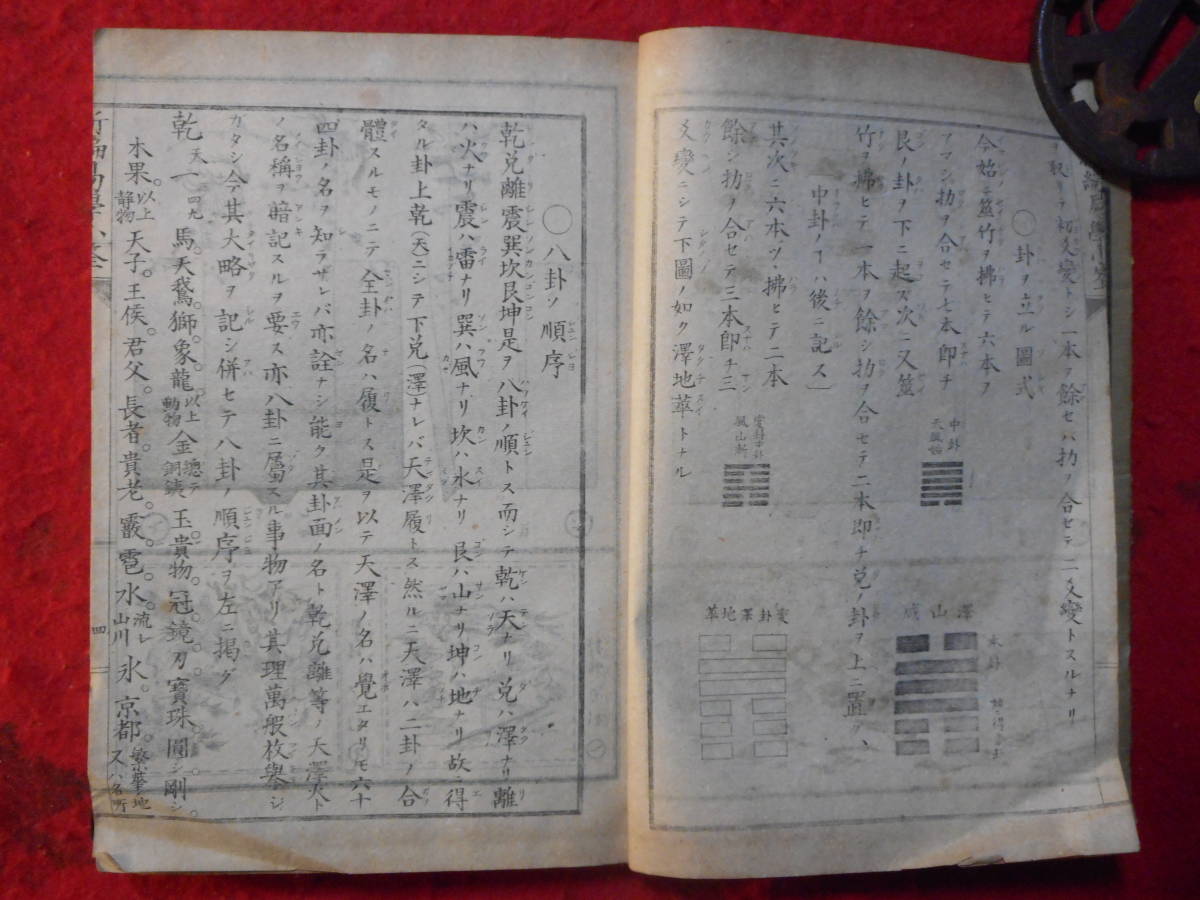 取リヲ初爻變トシ一本ヲ餘セバ扐ヲ合セテ二爻變トスルナリ
〇卦ヲ立ル圖式
今始ニ筮竹ヲ拂ヒテ六本ヲ
アマシ扐ヲ合セテ七本即チ
艮ノ卦ヲ下ニ起ズ次ニ又筮
竹ヲ拂ヒテ一本ヲ餘シ扐ヲ合セテ二本即ナ兌ノ卦ヲ上ニ置ク、
其次ニ六本ヅヽ拂ヒテ二本
「中卦ノヿハ後ニ記ス」
餘シ扐ヲ合セテ三本即チ三
爻變ニシテ下圖ノ如ク澤地萃トナル
中卦
天風姤
變卦中卦
風山漸
澤山咸
本卦
變卦澤地萃
〇八卦ノ順序
乾兌離震巽坎艮坤是ヲ八卦ノ順トス而シテ乾ハ天ナリ兌ハ澤ナリ離
ハ火ナリ震ハ雷ナリ巽ハ風ナリ坎ハ水ナリ艮ハ山ナリ坤ハ地ナリ故ニ得
タル卦上乾(天)ニシテ下兌(澤)ナレバ天澤履トス然ルニ天澤ハ二卦ノ合
體スルモノニテ全卦ノ名ハ履トス是ヲ以テ天澤ノ名ハ覺エタリモ六十
四卦ノ名ヲ知ラザレバ亦詮ナシ能ク其卦面ノ名ト乾兌離等ノ天澤火ト
ノ名稱ヲ暗記スルヲ要ス亦八卦ニ屬スル事物アリ其理萬般枚擧シ
ガタシ今其大略ヲ記シ併セテ八卦ノ順序ヲ左ニ掲グ
乾 天 一 四九 馬。天鵞。獅。象。龍以上動物金總テ銅銕玉。貴物。冠。鏡。刀。寶珠。圓シ。剛シ。
木果。以上静物天子。王侯。君父。長者。貴老。霰。雹。水。流レ山川氷。京都。繁華ノ地又ハ名所
四